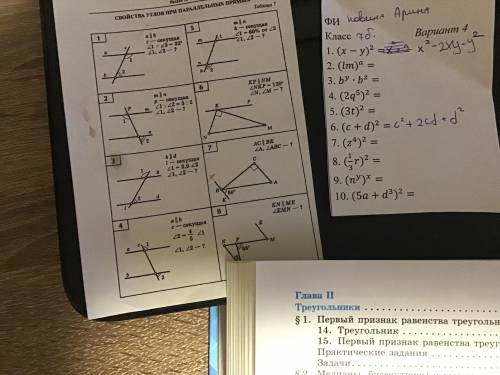 СВОЙСТВА УГЛОВ ПРИ ПАРАЛЛЕЛЬНЫХ ПРЯМЫХ
Таблица 7
1
a ∥ b
c — секущая
∠1 - ∠2 = 32°
∠1, ∠2 — ?
2
m ∥ n
p — секущая
∠1 : ∠2 = 3 : 2
∠1, ∠2 — ?
3
b ∥ d
l — секущая
∠1, ∠2 — ?
4
a ∥ b
c — секущая
∠2 = 4/5 ∠1
∠1, ∠2 — ?
5
m ∥ n
k — секущая
∠1 = 80% от ∠2
∠1, ∠2 — ?
6
KP ∥ NM
∠NKP = 120°
∠N, ∠M — ?
7
AC ∥ BE
∠A, ∠ABC — ?
60°
8
KN ∥ ME
∠EMN — ?
ФИ Арина
Вариант 4
Класс 7б.
1. (x − y)² = x² - 2xy - y²
2. (lm)ᵃ =
3. bʸ · b² =
4. (2q⁵)² =
5. (3t)² =
6. (c + d)² = c² + 2cd + d²
7. (z⁴)² =
8. r)² =
9. (nʸ)ˣ =
10. (5a + d³)² =
Глава II
Треугольники
§ 1. Первый признак равенства треугольн
14. Треугольник
15. Первый признак равенства треуг
Практические задания
Задачи
§ 2. Медианы, биссектрисы